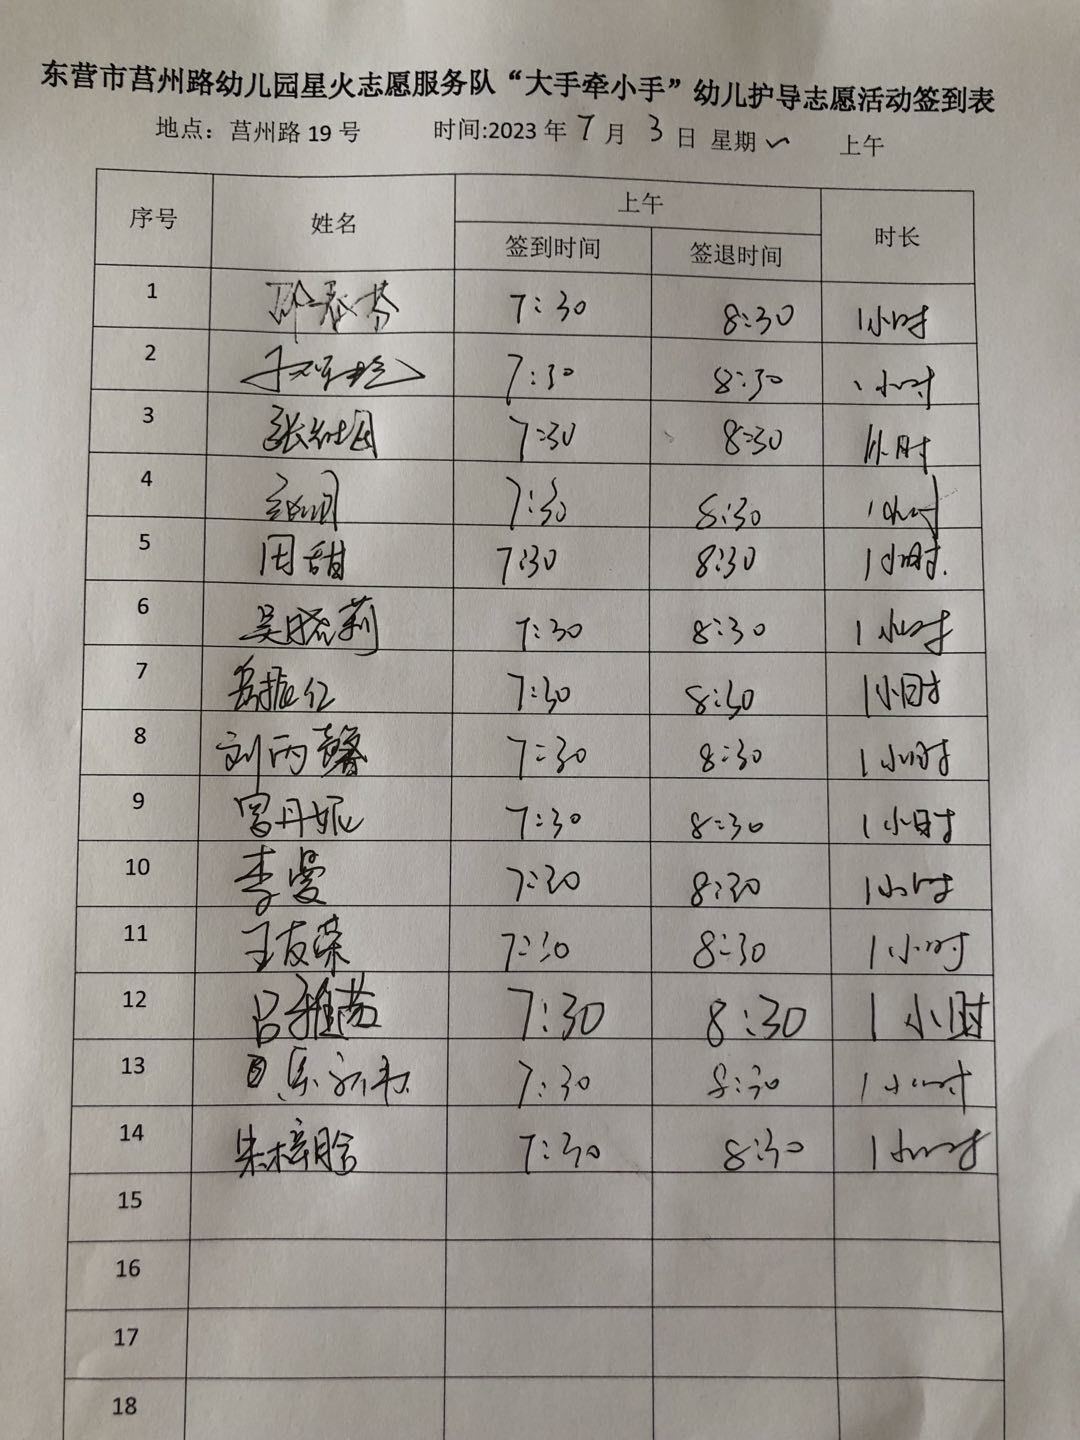 东营市莒州路幼儿园星火志愿服务队“大手牵小手”幼儿护导志愿活动签到表
地点：莒州路 19 号 时间:2023 年 7 月 3 日 星期一 上午
序号 姓名 上午 时长
签到时间 签退时间
1 7:30 8:30 1小时
2 7:30 8:30 1小时
3 7:30 8:30 1小时
4 7:30 8:30 1小时
5 田甜 7:30 8:30 1小时.
6 吴晓莉 7:30 8:30 1小时
7 岳振仁 7:30 8:30 1小时
8 刘丙馨 7:30 8:30 1小时
9 宫丹妮 7:30 8:30 1小时
10 李曼 7:30 8:30 1小时
11 王友荣 7:30 8:30 1小时
12 吕雅茹 7:30 8:30 1小时
13 7:30 8:30 1小时
14 朱梓晗 7:30 8:30 1小时
15
16
17
18